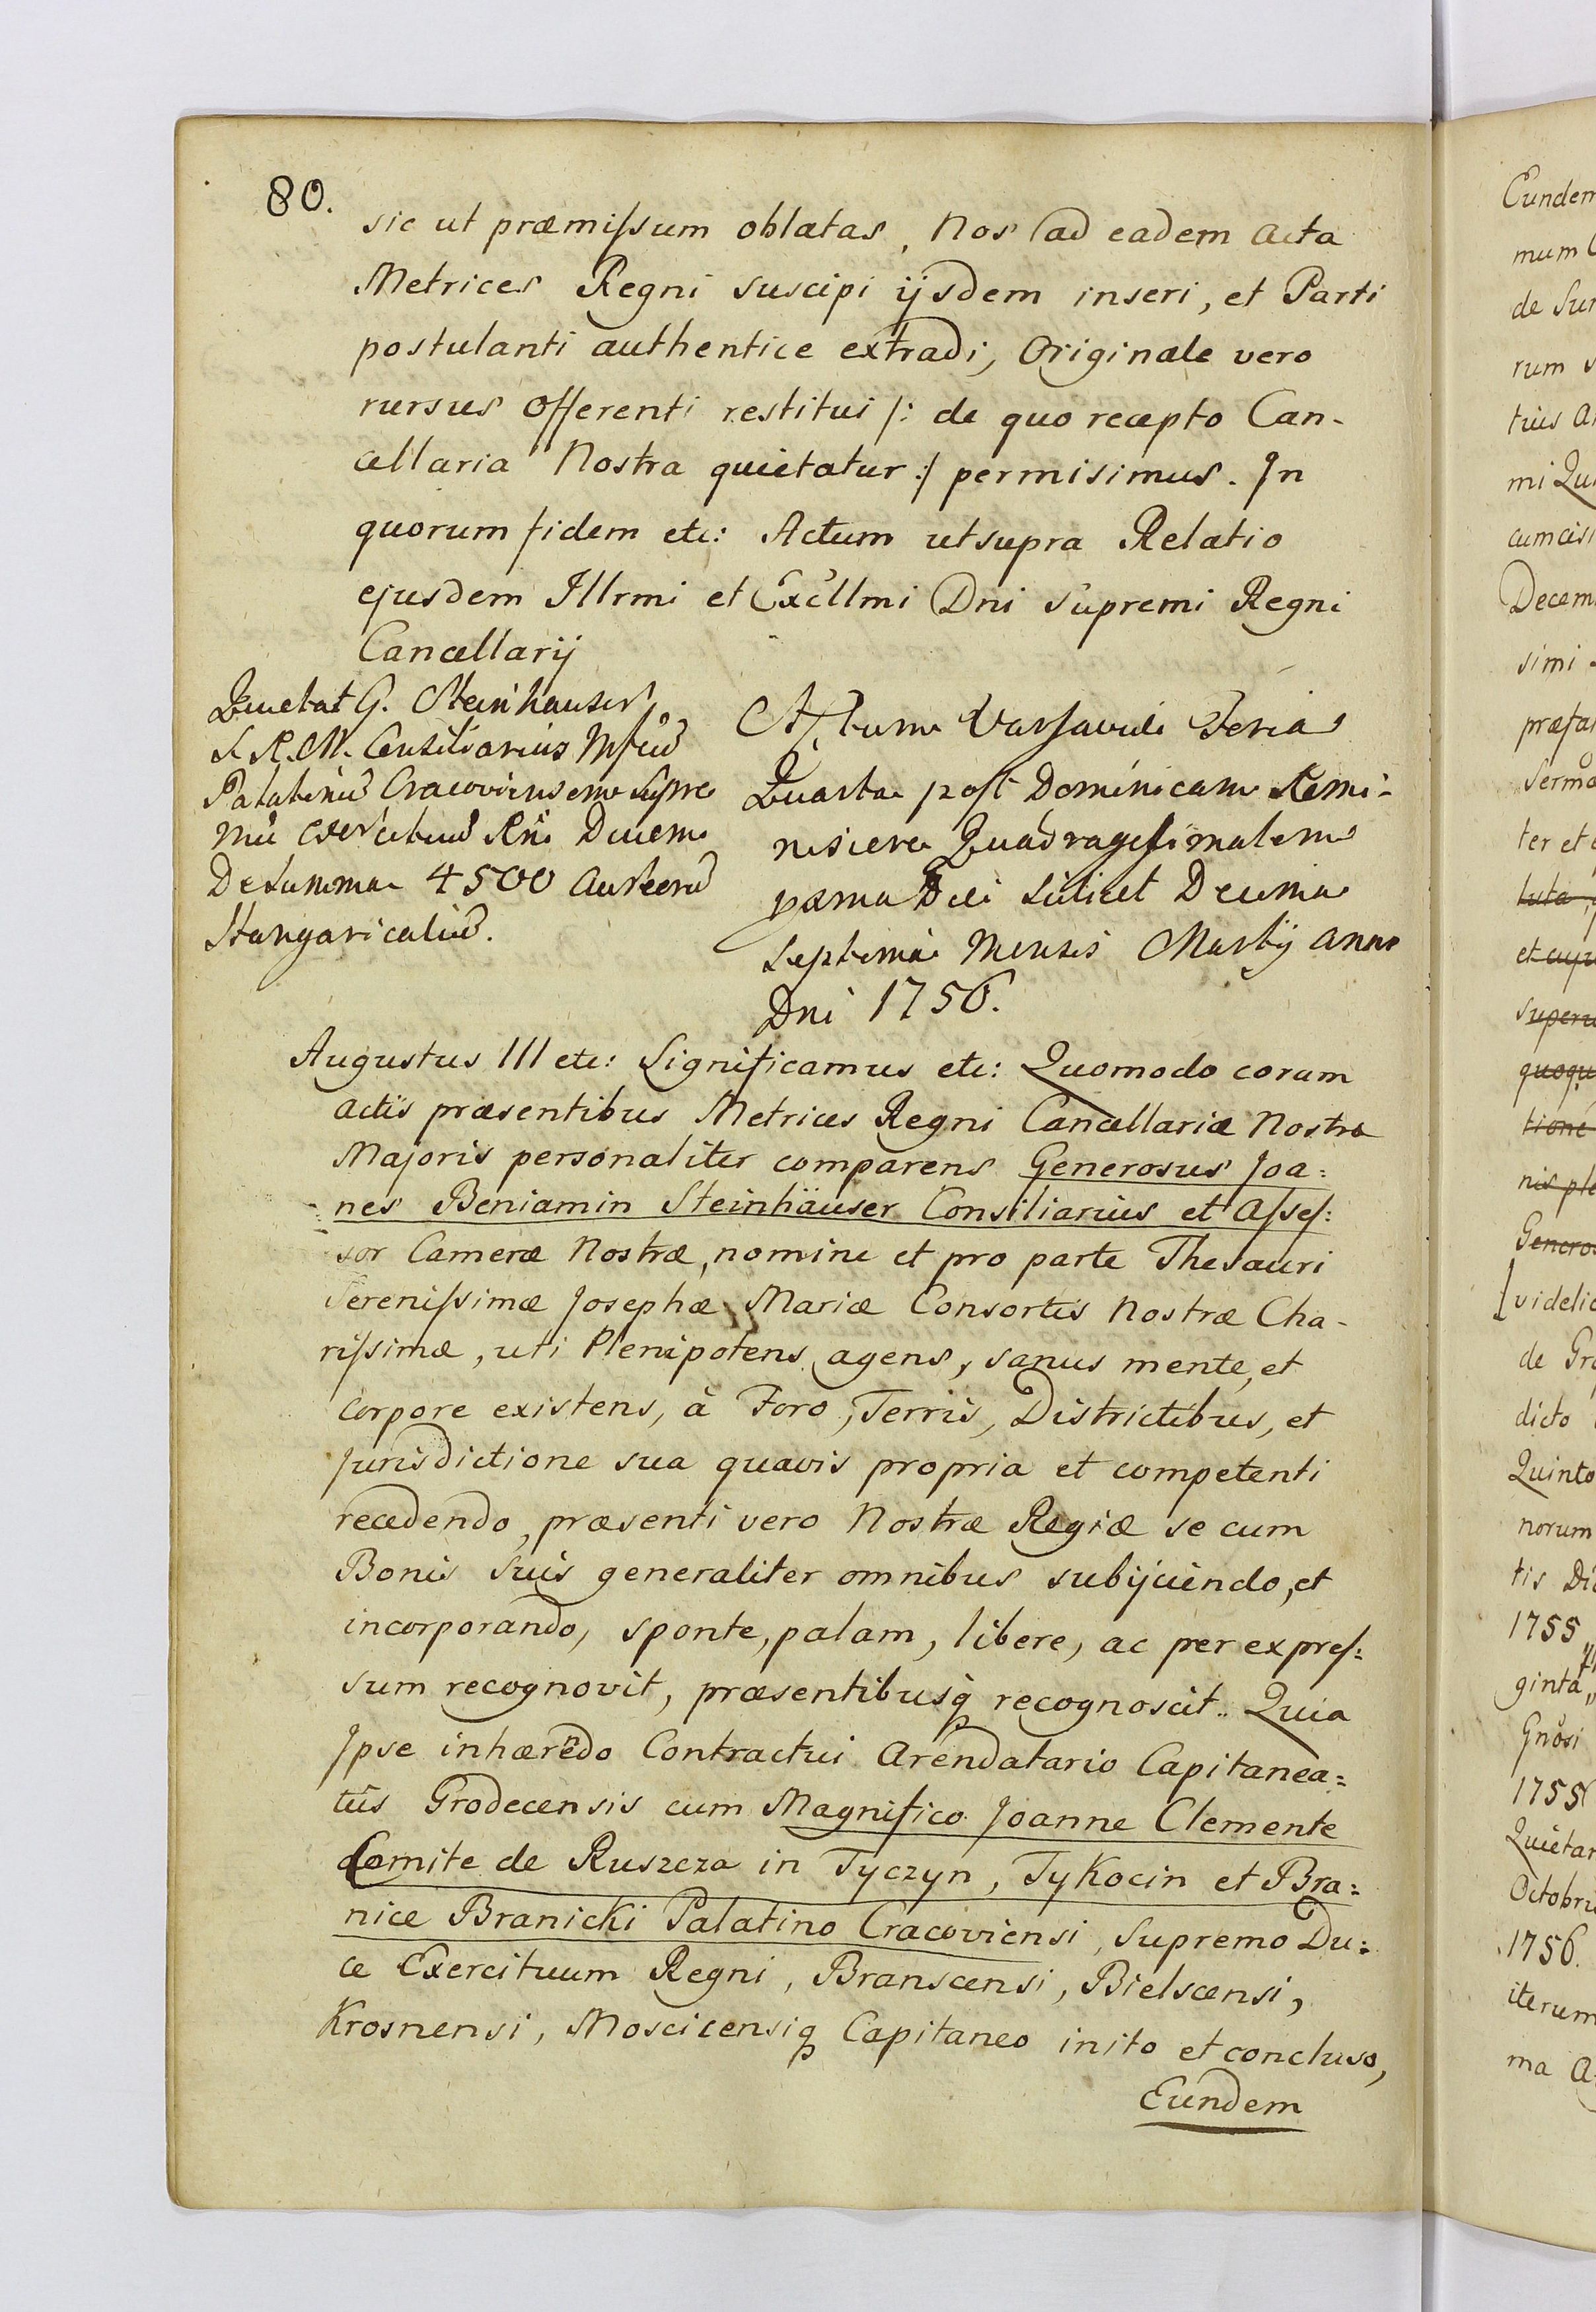 80.
sic ut præmissum oblatas, Nos ad eadem acta
Metrices Regni suscipi ijsdem inseri, et Parti
postulanti authentice extradi, Originale vero
rursus Offerenti restitui /: de quo recepto Can-
cellaria Nostra quietatur :/ permisimus. In
quorum fidem etc: Actum ut supra Relatio
ejusdem Illrmi et Excllmi Dni Supremi Regni
Cancellarij
Quietat G. Steinhauser
S. R. M. Consiliarius Mfcū
Palatinū Cracoviensem Supre
mū Exercituū Rni Ducem
De Summa 4500 Aureorū
Hungaricaliū.
Actum Varsaviæ Feria
Quarta post Dominicam Remi-
niscere Quadragesimalem
pxma Die Scilicet Decima
Septima Mensis Martij Anno
Dni 1756.
Augustus III etc: Significamus etc: Quomodo coram
actis præsentibus Metrices Regni Cancellariæ Nostræ
Majoris personaliter comparens Generosus Joa=
nes Beniamin Steinhäuser Consiliarius et Asses=
sor Cameræ Nostræ, nomine et pro parte Thesauri
Serenissimæ Josephæ Mariæ Consortis Nostræ Cha-
rissimæ, uti Plenipotens agens, sanus mente, et
corpore existens, à Foro, Terris, Districtibus, et
Jurisdictione sua quavis propria et competenti
recedendo, præsenti vero Nostræ Regiæ se cum
Bonis suis generaliter omnibus subijciendo, et
incorporando, sponte, palam, libere, ac per expres=
sum recognovit, præsentibusq̃ recognoscit. Quia
Ipse inhærēdo Contractui Arendatario Capitanea=
tûs Grodecensis cum Magnifico Joanne Clemente
Comite de Ruszcza in Tyczyn, Tykocin et Bra=
nice Branicki Palatino Cracoviensi, Supremo Du=
ce Exercituum Regni, Branscensi, Bielscensi,
Krosnensi, Moscicensiq̃ Capitaneo inito et concluso,
Eundem
Eundem
mum
de Su
rum
tius
mi
cum
Decem
simi
præfa
Serma
ter et
luta
et
super
quoqu
tione
nis ple
Generos
videlic
de Gr
dicto
Quinto
norum
tis Di
1755
ginta
Gnosi
1755
Quietan
Octobri
1756.
iterum
ma